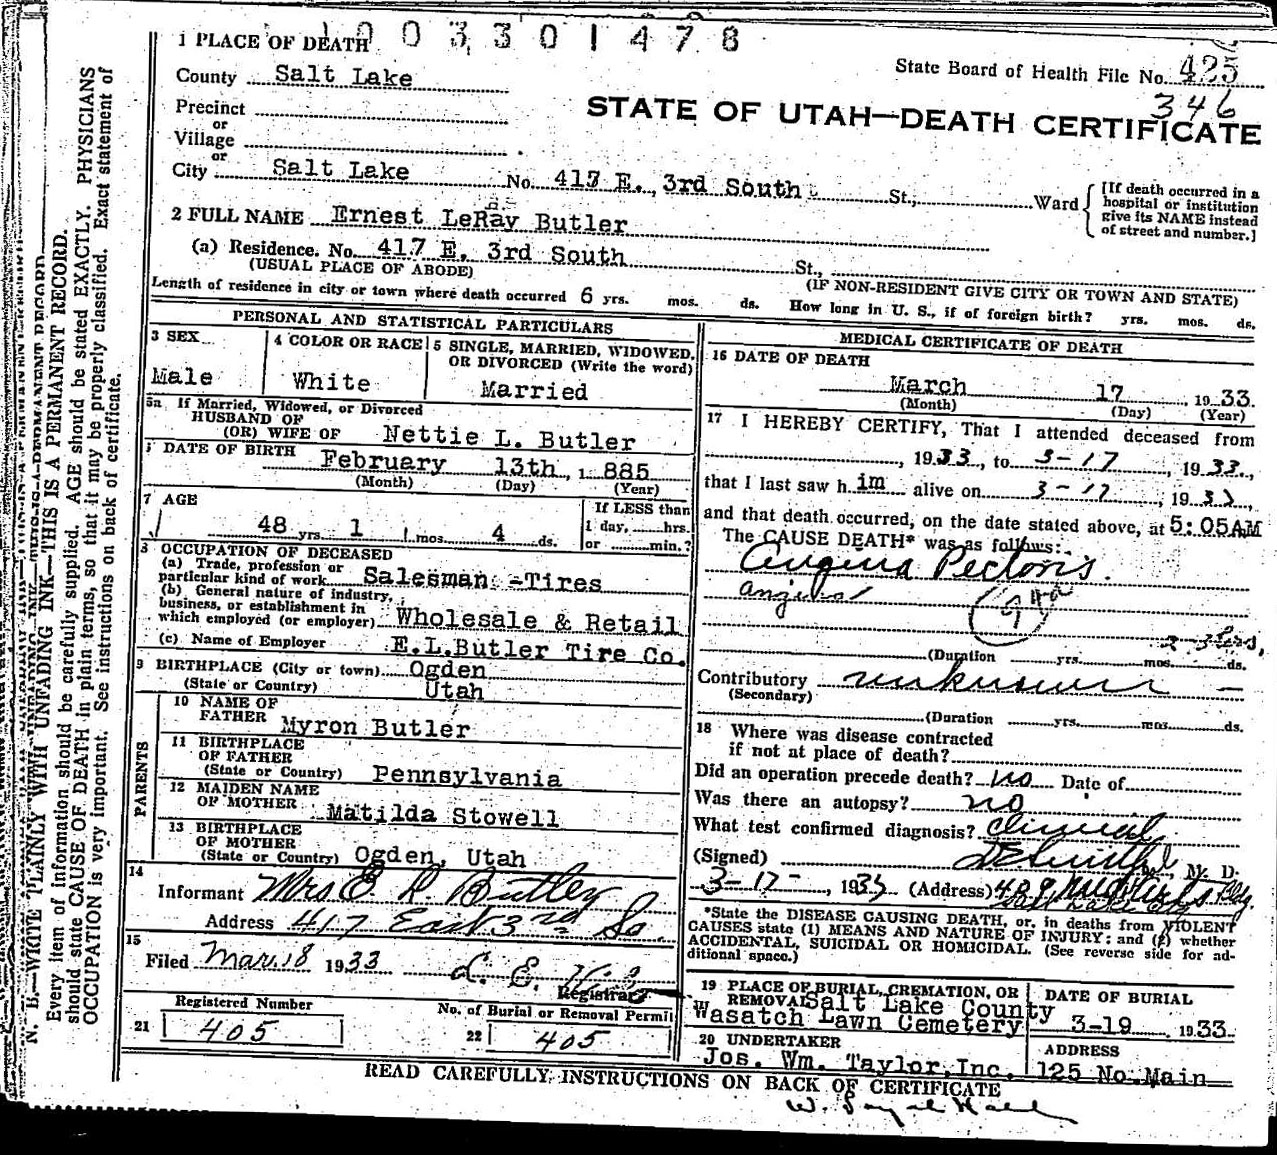 1003301478
1 PLACE OF DEATH
State Board of Health File No. 425
346
County Salt Lake
STATE OF UTAH—DEATH CERTIFICATE
Precinct
or
Village
or
City Salt Lake No. 417 E. 3rd South St., Ward
[If death occurred in a
hospital or institution
give its NAME instead
of street and number.]
2 FULL NAME Ernest LeRay Butler
(a) Residence. No. 417 E. 3rd South St.,
(USUAL PLACE OF ABODE)
(IF NON-RESIDENT GIVE CITY OR TOWN AND STATE)
Length of residence in city or town where death occurred 6 yrs. mos. ds. How long in U. S., if of foreign birth? yrs. mos. ds.
PERSONAL AND STATISTICAL PARTICULARS
3 SEX
Male
4 COLOR OR RACE
White
5 SINGLE, MARRIED, WIDOWED,
OR DIVORCED (Write the word)
Married
5a If Married, Widowed, or Divorced
HUSBAND OF
(OR) WIFE OF Nettie L. Butler
DATE OF BIRTH February 13th, 1885
(Month) (Day) (Year)
7 AGE
48 yrs. 1 mos. 4 ds.
If LESS than
1 day, hrs.
or min.?
OCCUPATION OF DECEASED
(a) Trade, profession or
particular kind of work Salesman -Tires
(b) General nature of industry,
business, or establishment in
which employed (or employer) Wholesale & Retail
(c) Name of Employer E.L.Butler Tire Co.
9 BIRTHPLACE (City or town) Ogden
(State or Country) Utah
PARENTS
10 NAME OF
FATHER Myron Butler
11 BIRTHPLACE
OF FATHER
(State or Country) Pennsylvania
12 MAIDEN NAME
OF MOTHER Matilda Stowell
13 BIRTHPLACE
OF MOTHER
(State or Country) Ogden, Utah
14
Informant Mrs E L Butler
Address 417 East 3rd So.
15
Filed Mar. 18 1933
Registrar
Registered Number
21 405
No. of Burial or Removal Permit
22 405
MEDICAL CERTIFICATE OF DEATH
16 DATE OF DEATH
March 17, 1933.
(Month) (Day) (Year)
17 I HEREBY CERTIFY, That I attended deceased from
, 1933, to 3-17, 1933,
that I last saw him alive on 3-17, 1933,
and that death occurred, on the date stated above, at 5:05AM
The CAUSE DEATH* was as follows:
Angina Pectoris.
Angina
94a
2-3 hrs,
(Duration yrs. mos. ds.
Contributory unknown —
(Secondary)
(Duration yrs. mos. ds.
18 Where was disease contracted
if not at place of death?
Did an operation precede death? no Date of
Was there an autopsy? no
What test confirmed diagnosis? Clinical
(Signed) M. D.
3-17-, 1933 (Address) Bldg.
Salt Lake City
*State the DISEASE CAUSING DEATH, or, in deaths from VIOLENT
CAUSES state (1) MEANS AND NATURE OF INJURY; and (2) whether
ACCIDENTAL, SUICIDAL OR HOMICIDAL. (See reverse side for ad-
ditional space.)
19 PLACE OF BURIAL, CREMATION, OR
REMOVAL Salt Lake County
Wasatch Lawn Cemetery
DATE OF BURIAL
3-19 1933
20 UNDERTAKER
Jos. Wm. Taylor, Inc.
ADDRESS
125 No. Main
READ CAREFULLY, INSTRUCTIONS ON BACK OF CERTIFICATE
N. B.—WRITE PLAINLY WITH UNFADING INK—THIS IS A PERMANENT RECORD.
Every item of information should be carefully supplied. AGE should be stated EXACTLY. PHYSICIANS
should state CAUSE OF DEATH in plain terms, so that it may be properly classified. Exact statement of
OCCUPATION is very important. See instructions on back of certificate.